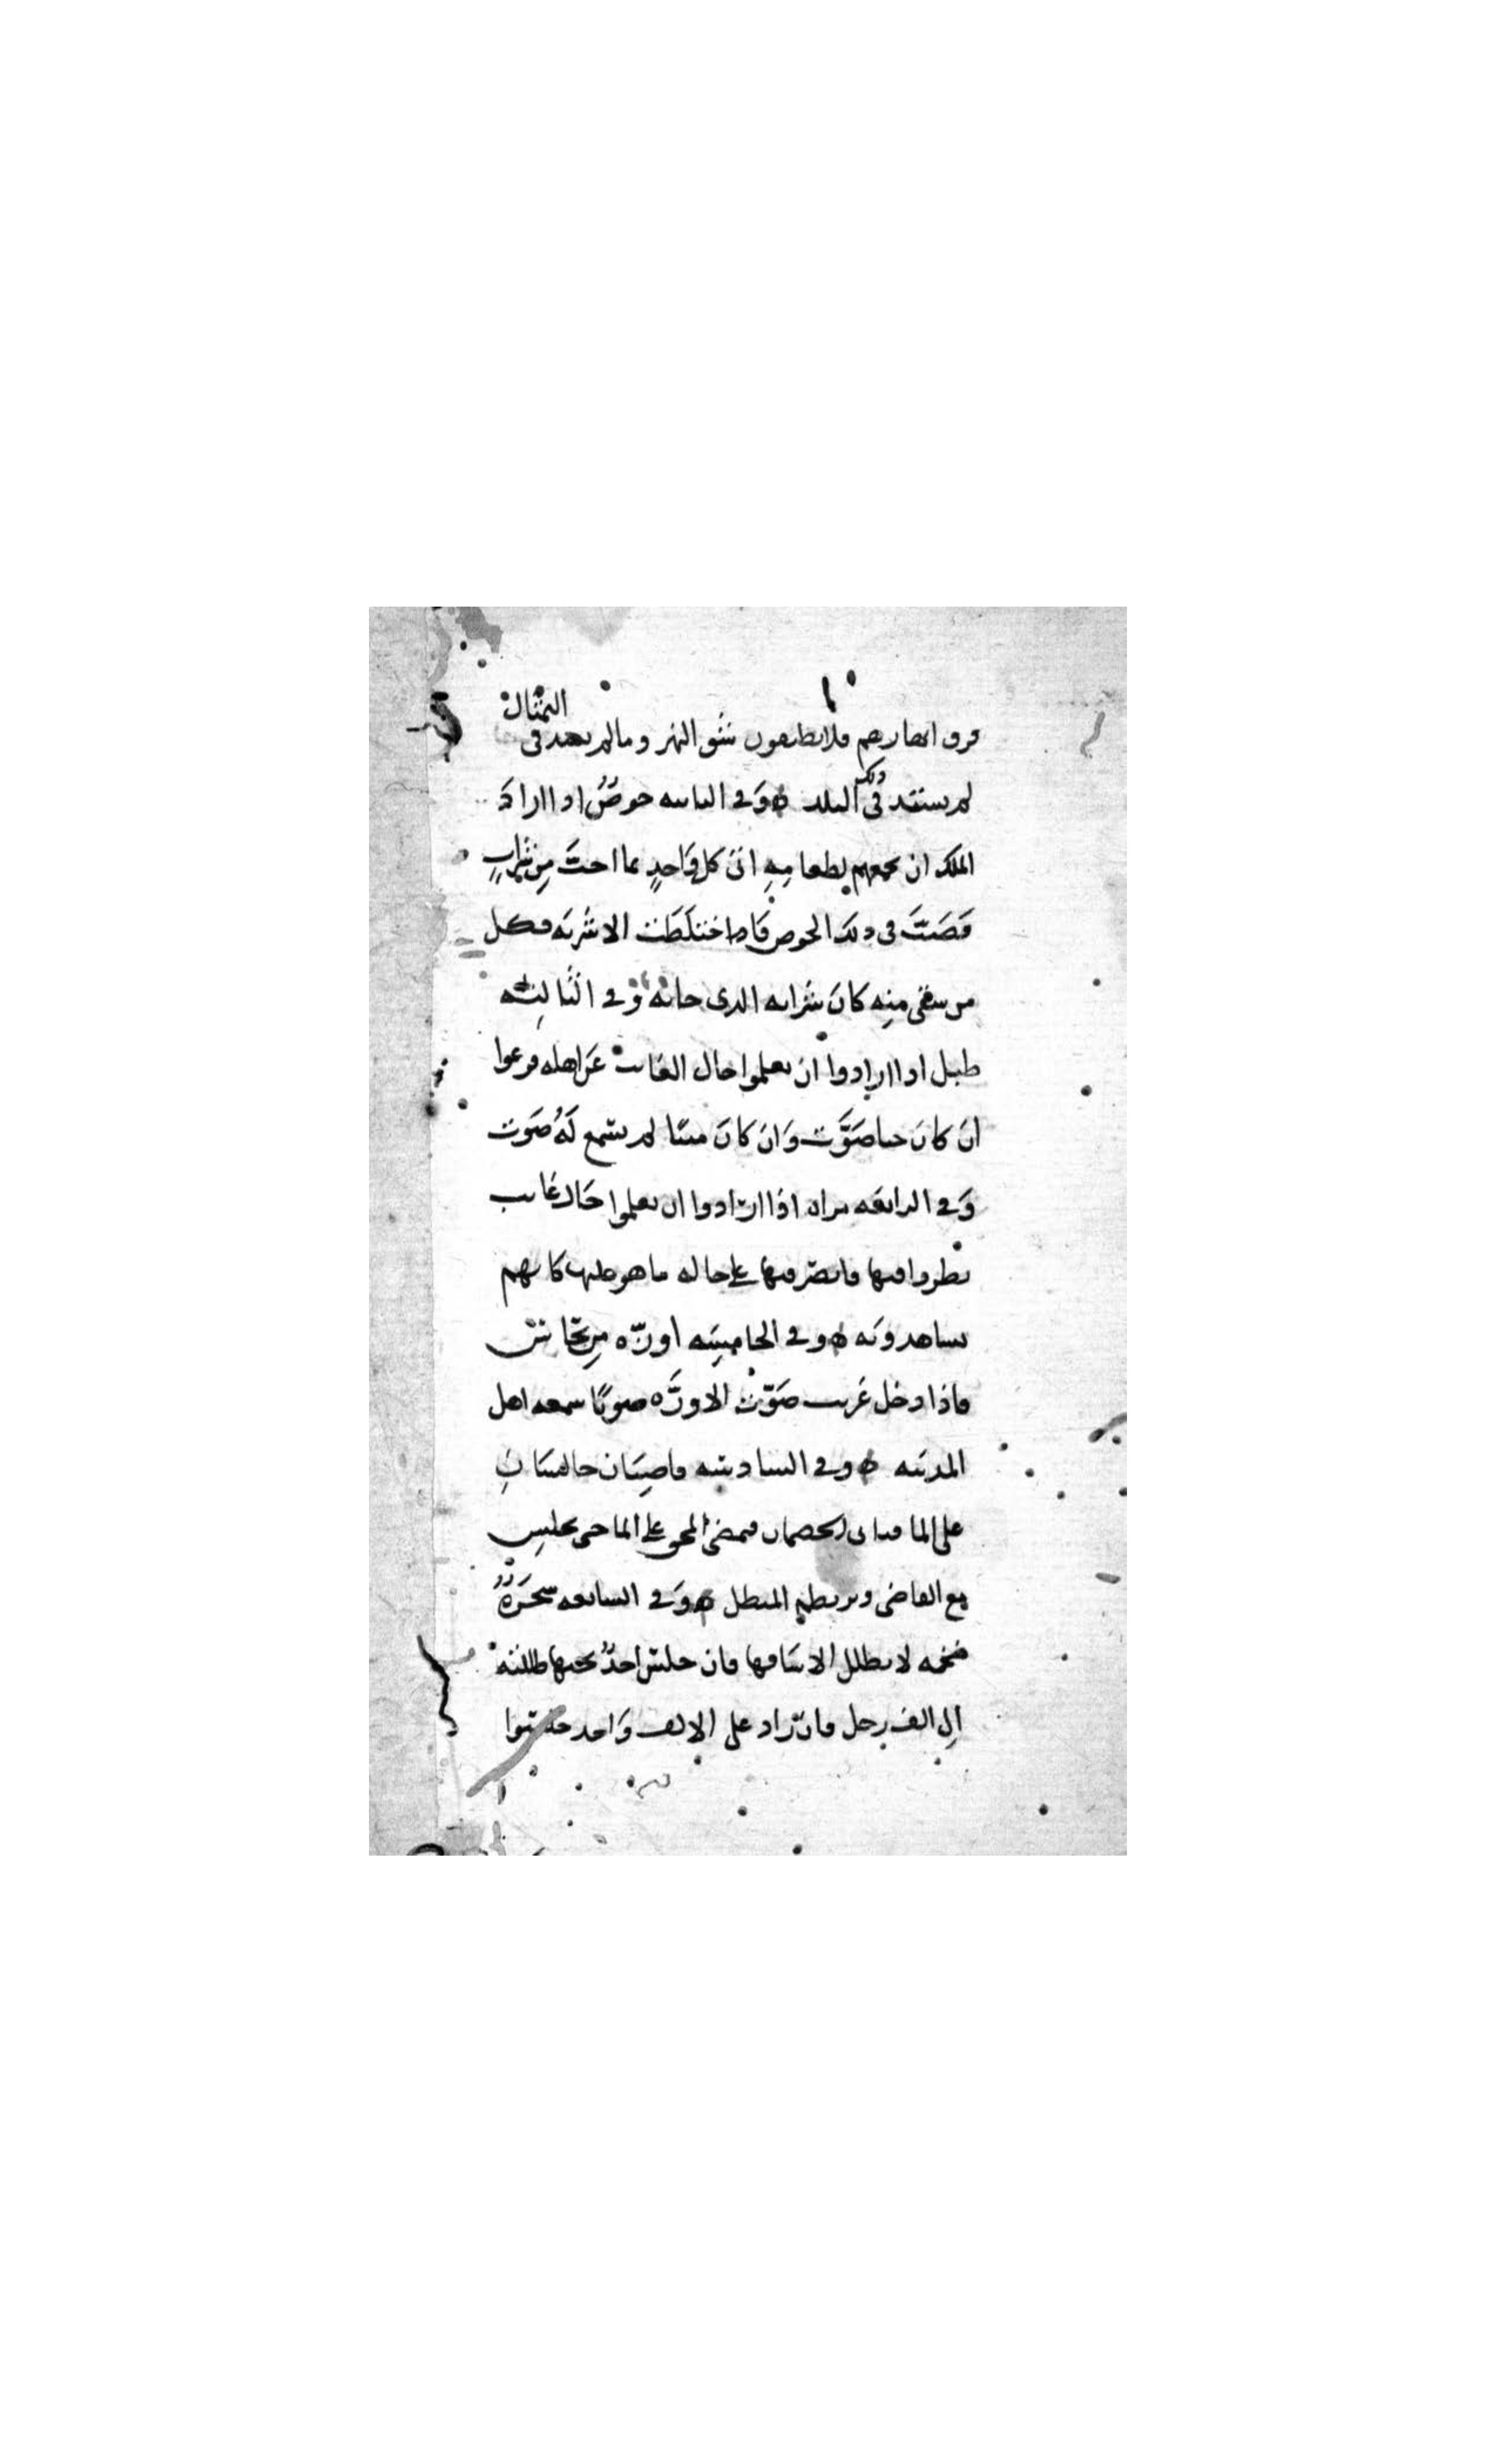 التمثال
خرق انهارهم فلا يطيقون شق النهر وما لم يسد في
لم يستد في ذلك البلد ه وَفي الثانيه حوضٌ اذا ارادَ
الملك ان يجمعهم لطعامِهِ اتىَ كل وَاحدٍ بما احبَّ مِن شرابٍ
فَصَبَّ في ذلك الحوض فَاختلَطَت الاشربَه فكل
من سقي منِه كانَ شرابه الذي جابه وَفي الثالثه
طبل اذا ارادوا ان يعلموا حال الغائب عَن اهله قرعوا
ان كانَ حيا صَوَّت وَان كانَ ميتا لم يسمع لَهُ صَوت
وَفي الرابعَه مراه اذا ارادوا ان يعلموا حَال غايب
نظروا فيها فابصر فيها على حاله ما هو عليها كانهم
يشاهدونَه ه وفي الخامِسَه اوزّه مِن نحاس
فاذا دخل غريب صَوّتت الاوزَّه صوتًا سمعه اهل
المدينَه ه وفي السادسه قاضيَان جالسَانِ
على الما فياتي الخصمان فيمضي المحق على الما حتى يجلس
مع القاضي ويرتطم المبطل ه وَفي السابعه شجَرَةٌ
ضخمه لا تظلل الا ساقها فان جلسَ احدٌ تحتها ظللته
الِى الف رجل فان زاد على الالف وَاحد جلسوا